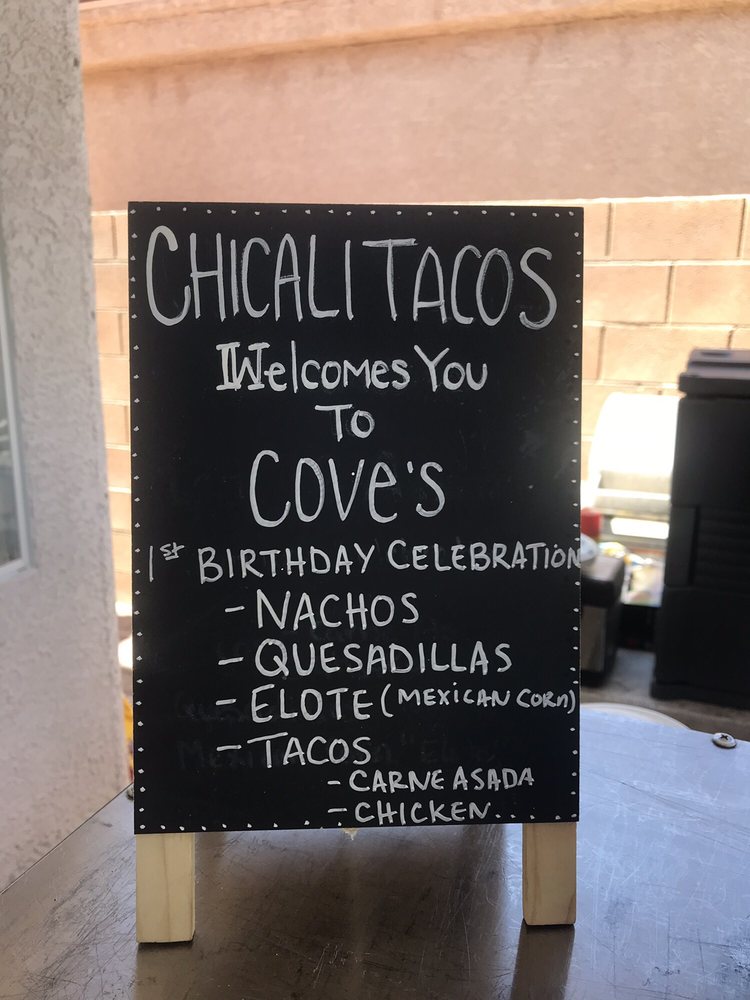 CHICALI TACOS
Welcomes You
To
COVe's
1st BIRTHDAY CELEBRATION
- NACHOS
- QUESADILLAS
- ELOTE (MEXICAN CORn)
- TACOS
- CARNE ASADA
- CHICKEN